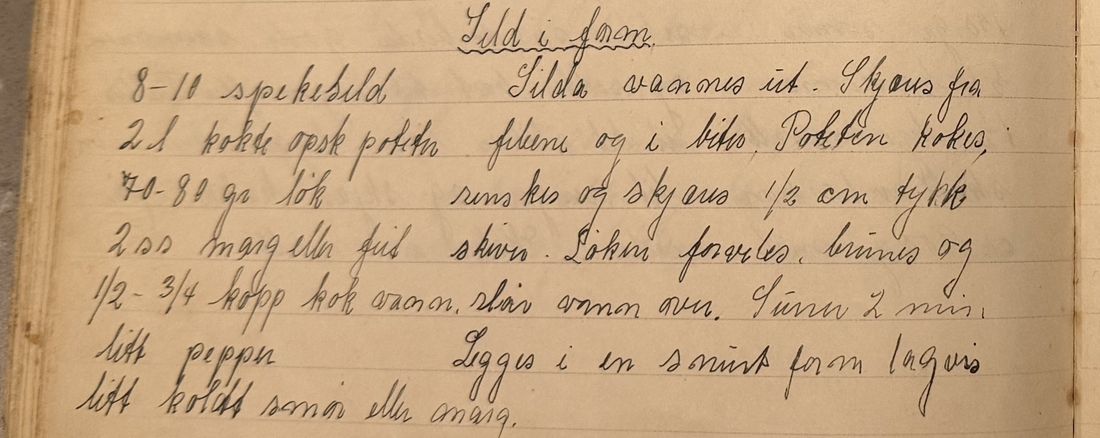 Sild i form.
8-10 spekesild Silda vannes ut. Skjæres fra
2 l kokte opsk poteter febene og i biter, Poteten kokes,
70-80 gr løk renskes og skjæres 1/2 cm tykk
2 ss marg eller fett skiver. Løken forvelles, brunes og
1/2 - 3/4 kopp kok vann. slår vann over. Surrer 2 min.
litt pepper Legges i en smurt form lagvis
litt koldt smør eller marg.